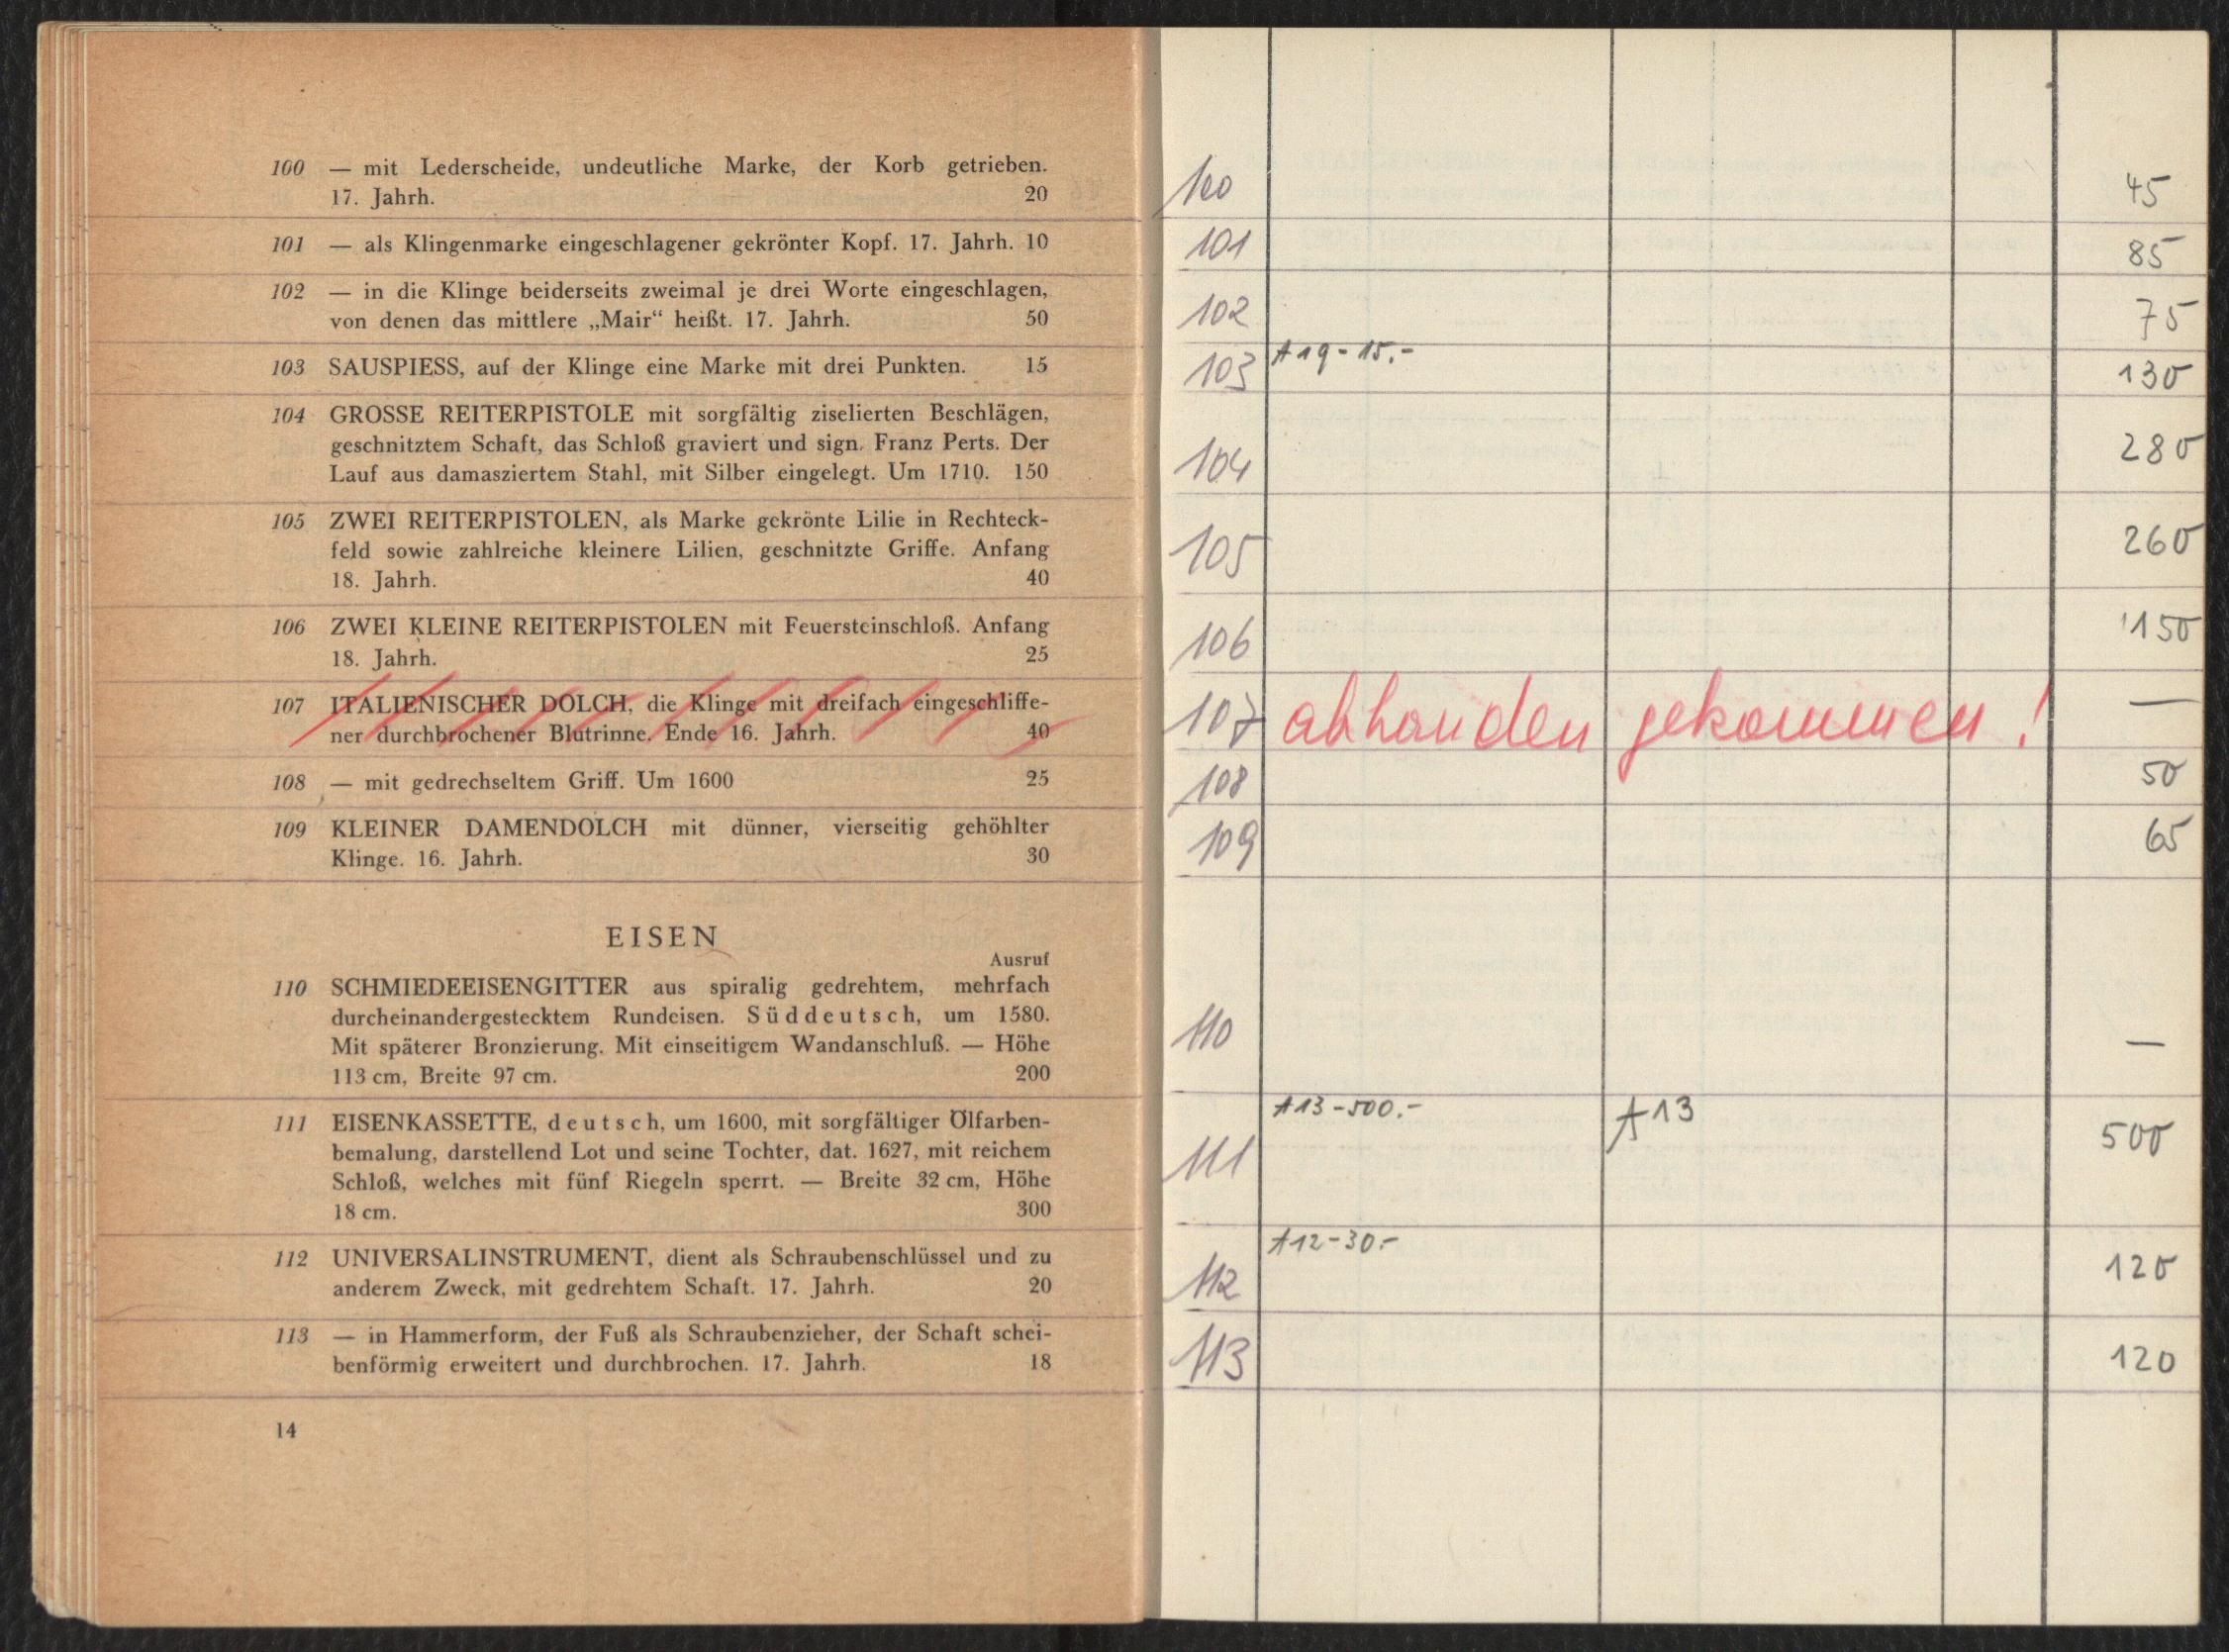 100 — mit Lederscheide, undeutliche Marke, der Korb getrieben.
17. Jahrh. 20
101 — als Klingenmarke eingeschlagener gekrönter Kopf. 17. Jahrh. 10
102 — in die Klinge beiderseits zweimal je drei Worte eingeschlagen,
von denen das mittlere „Mair“ heißt. 17. Jahrh. 50
103 SAUSPIESS, auf der Klinge eine Marke mit drei Punkten. 15
104 GROSSE REITERPISTOLE mit sorgfältig ziselierten Beschlägen,
geschnitztem Schaft, das Schloß graviert und sign. Franz Perts. Der
Lauf aus damasziertem Stahl, mit Silber eingelegt. Um 1710. 150
105 ZWEI REITERPISTOLEN, als Marke gekrönte Lilie in Rechteck-
feld sowie zahlreiche kleinere Lilien, geschnitzte Griffe. Anfang
18. Jahrh. 40
106 ZWEI KLEINE REITERPISTOLEN mit Feuersteinschloß. Anfang
18. Jahrh. 25
107 ITALIENISCHER DOLCH, die Klinge mit dreifach eingeschliffe-
ner durchbrochener Blutrinne. Ende 16. Jahrh. 40
108 — mit gedrechseltem Griff. Um 1600 25
109 KLEINER DAMENDOLCH mit dünner, vierseitig gehöhlter
Klinge. 16. Jahrh. 30
EISEN
Ausruf
110 SCHMIEDEEISENGITTER aus spiralig gedrehtem, mehrfach
durcheinandergestecktem Rundeisen. Süddeutsch, um 1580.
Mit späterer Bronzierung. Mit einseitigem Wandanschluß. — Höhe
113 cm, Breite 97 cm. 200
111 EISENKASSETTE, deutsch, um 1600, mit sorgfältiger Ölfarben-
bemalung, darstellend Lot und seine Tochter, dat. 1627, mit reichem
Schloß, welches mit fünf Riegeln sperrt. — Breite 32 cm, Höhe
18 cm. 300
112 UNIVERSALINSTRUMENT, dient als Schraubenschlüssel und zu
anderem Zweck, mit gedrehtem Schaft. 17. Jahrh. 20
113 — in Hammerform, der Fuß als Schraubenzieher, der Schaft schei-
benförmig erweitert und durchbrochen. 17. Jahrh. 18
14
100 45
101 85
102 75
103 A19-15.- 130
104 280
105 260
106 150
107 abhanden gekommen! —
108 50
109 65
110 —
111 A13-500.- A13 500
112 A12-30.- 120
113 120